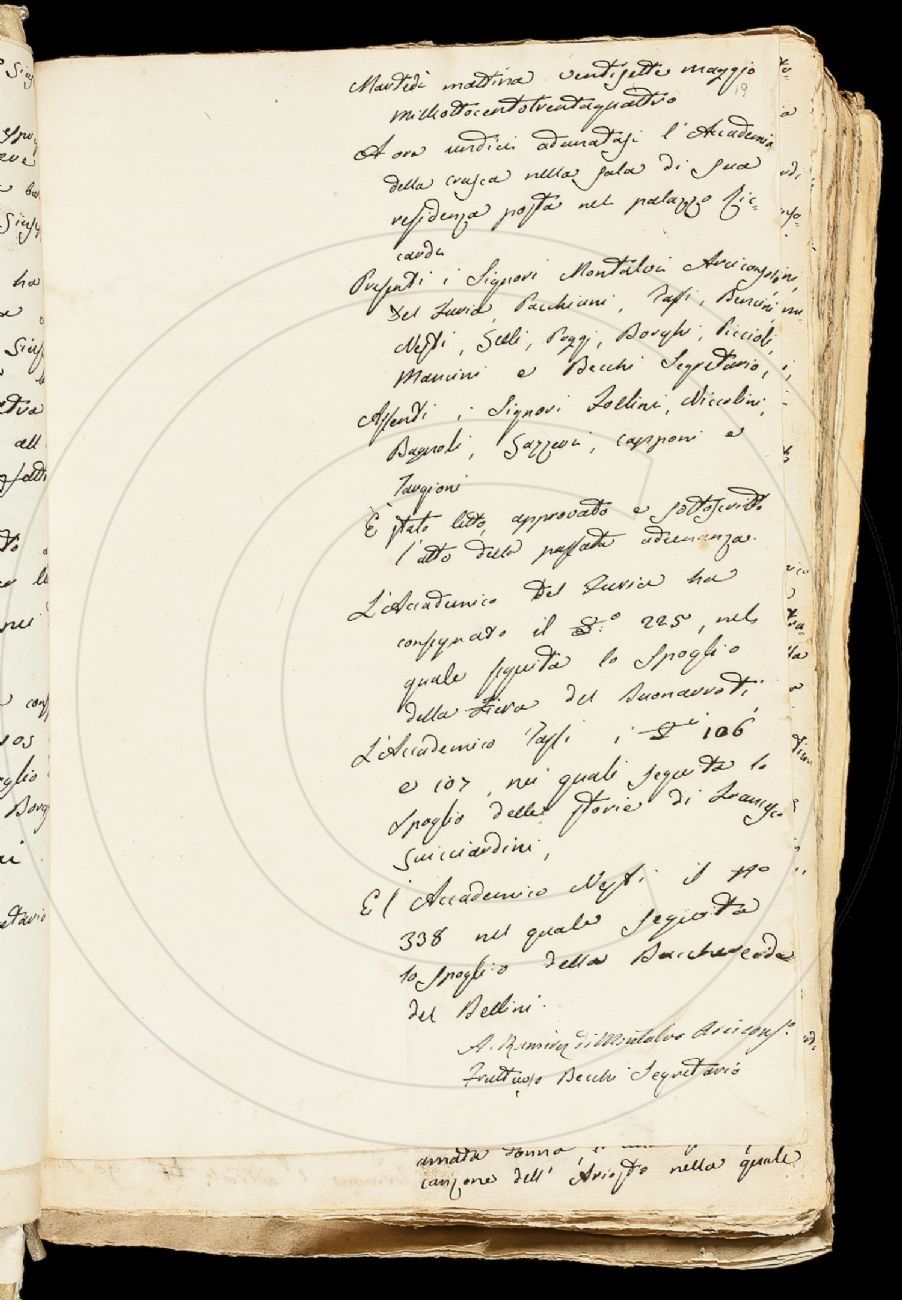 Martedì mattina ventisette maggio
19
milleottocentotrentaquattro
A ore undici adunatasi l'Accademia
della crusca nella sala di sua
residenza posta nel palazzo Ric=
cardi
Presenti i Signori Montalvi Arciconsolo,
Del Furia, Pacchiani, Tassi, Bencini,
Nesti, Selli, Poggi, Borghi, Piccioli,
Mancini e Becchi Segretario,
Assenti i Signori Zollini, Niccolini,
Bagnoli, Gazzeri, Capponi e
Targioni
È stato letto, approvato e sottoscritto
l'atto della passata adunanza.
L'Accademico Del Furia ha
consegnato il S.o 225, nel
quale seguita lo Spoglio
della Fiera del Buonarroti
L'Accademico Tassi i S.i 106
e 107, nei quali seguita lo
Spoglio delle storie di Francesco
Guicciardini,
E l'Accademico Nesti il No
338 nel quale seguita
lo Spoglio della Bucchereide
del Bellini.
A. Ramirez di Montalvo Arcicons.o
Fruttuoso Becchi Segretario
amata donna,
canzone dell' Ariosto nella quale